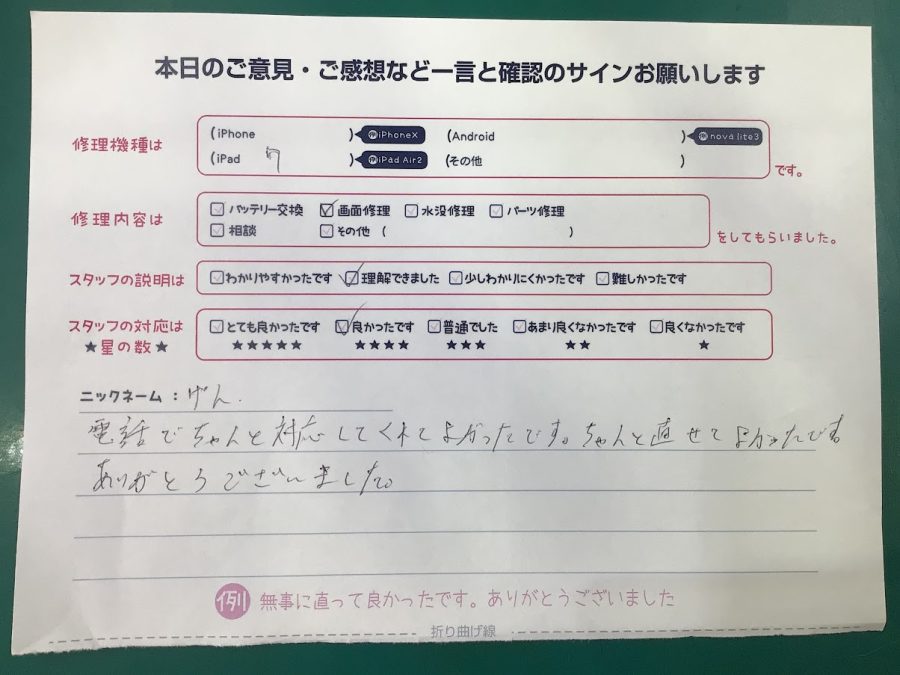 本日のご意見・ご感想など一言と確認のサインお願いします
修理機種は
(iPhone ) 例iPhoneX (Android ) 例nova lite3
(iPad 7 ) 例iPad Air2 (その他 )
です。
修理内容は
バッテリー交換 画面修理 水没修理 パーツ修理
相談 その他 ( )
をしてもらいました。
スタッフの説明は
わかりやすかったです 理解できました 少しわかりにくかったです 難しかったです
スタッフの対応は
★星の数★
とても良かったです 良かったです 普通でした あまり良くなかったです 良くなかったです
★★★★★ ★★★★ ★★★ ★★ ★
ニックネーム：げん.
電話でちゃんと対応してくれてよかったです。ちゃんと直せてよかったです
ありがとうございました。
例 無事に直って良かったです。ありがとうございました
折り曲げ線